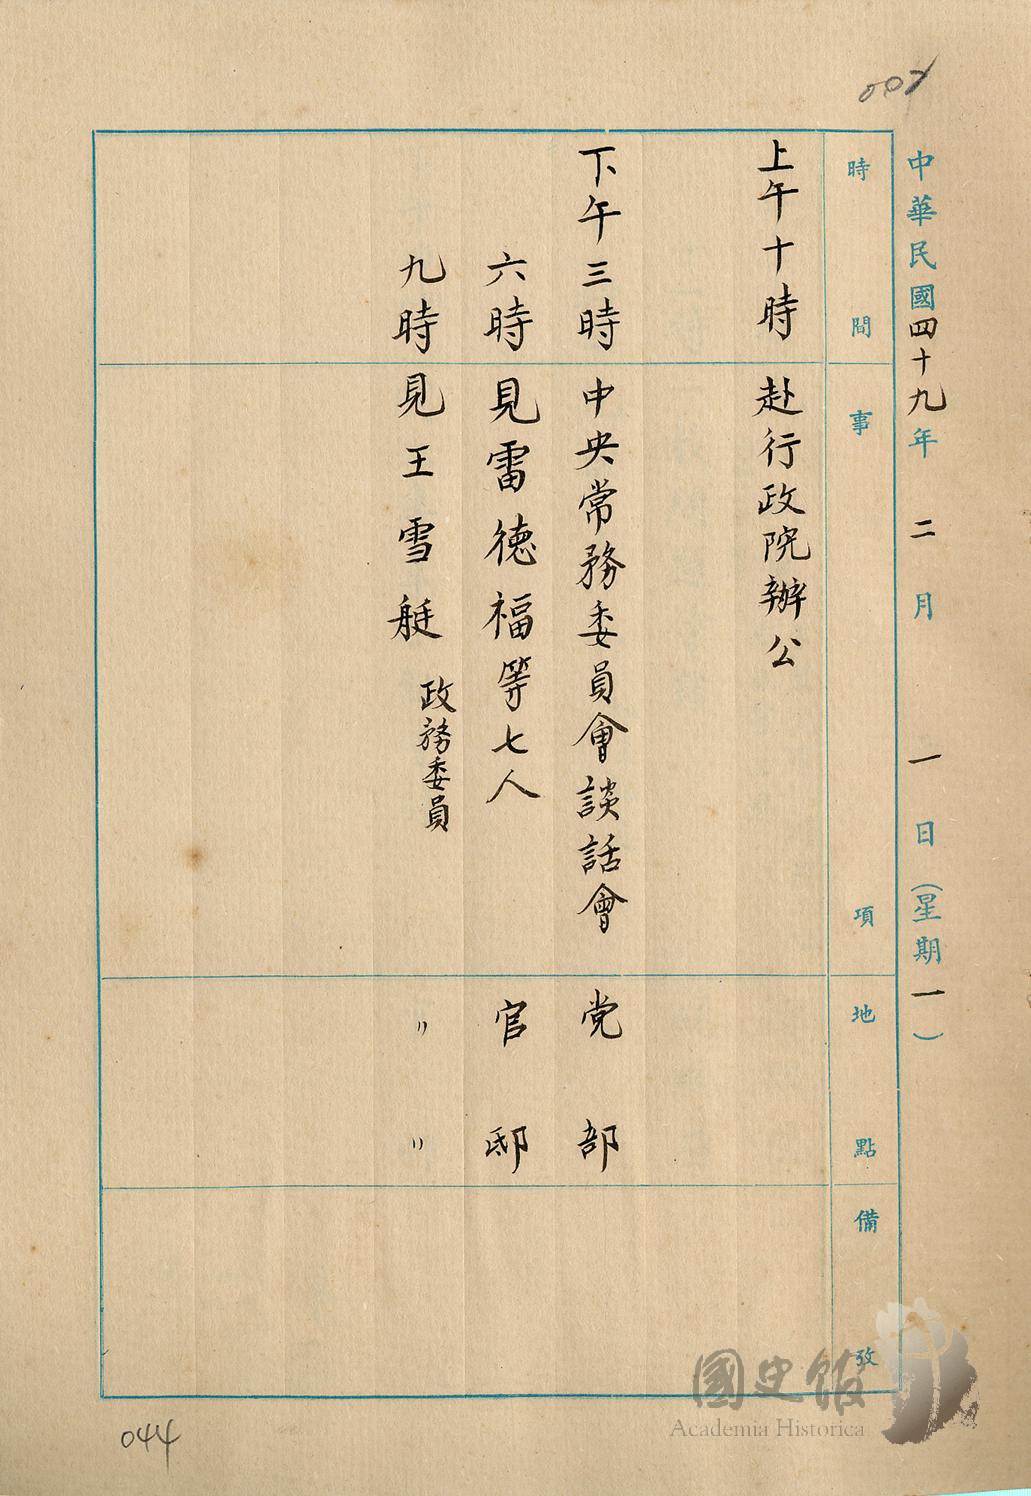 中華民國四十九年 二月 一日（星期一）
時間 事項 地點 備攷
上午十時 赴行政院辦公
下午三時 中央常務委員會談話會 党部
六時 見雷德福等七人 官邸
九時 見王雪艇 政務委員 〃 〃
044
國史館
Academia Historica